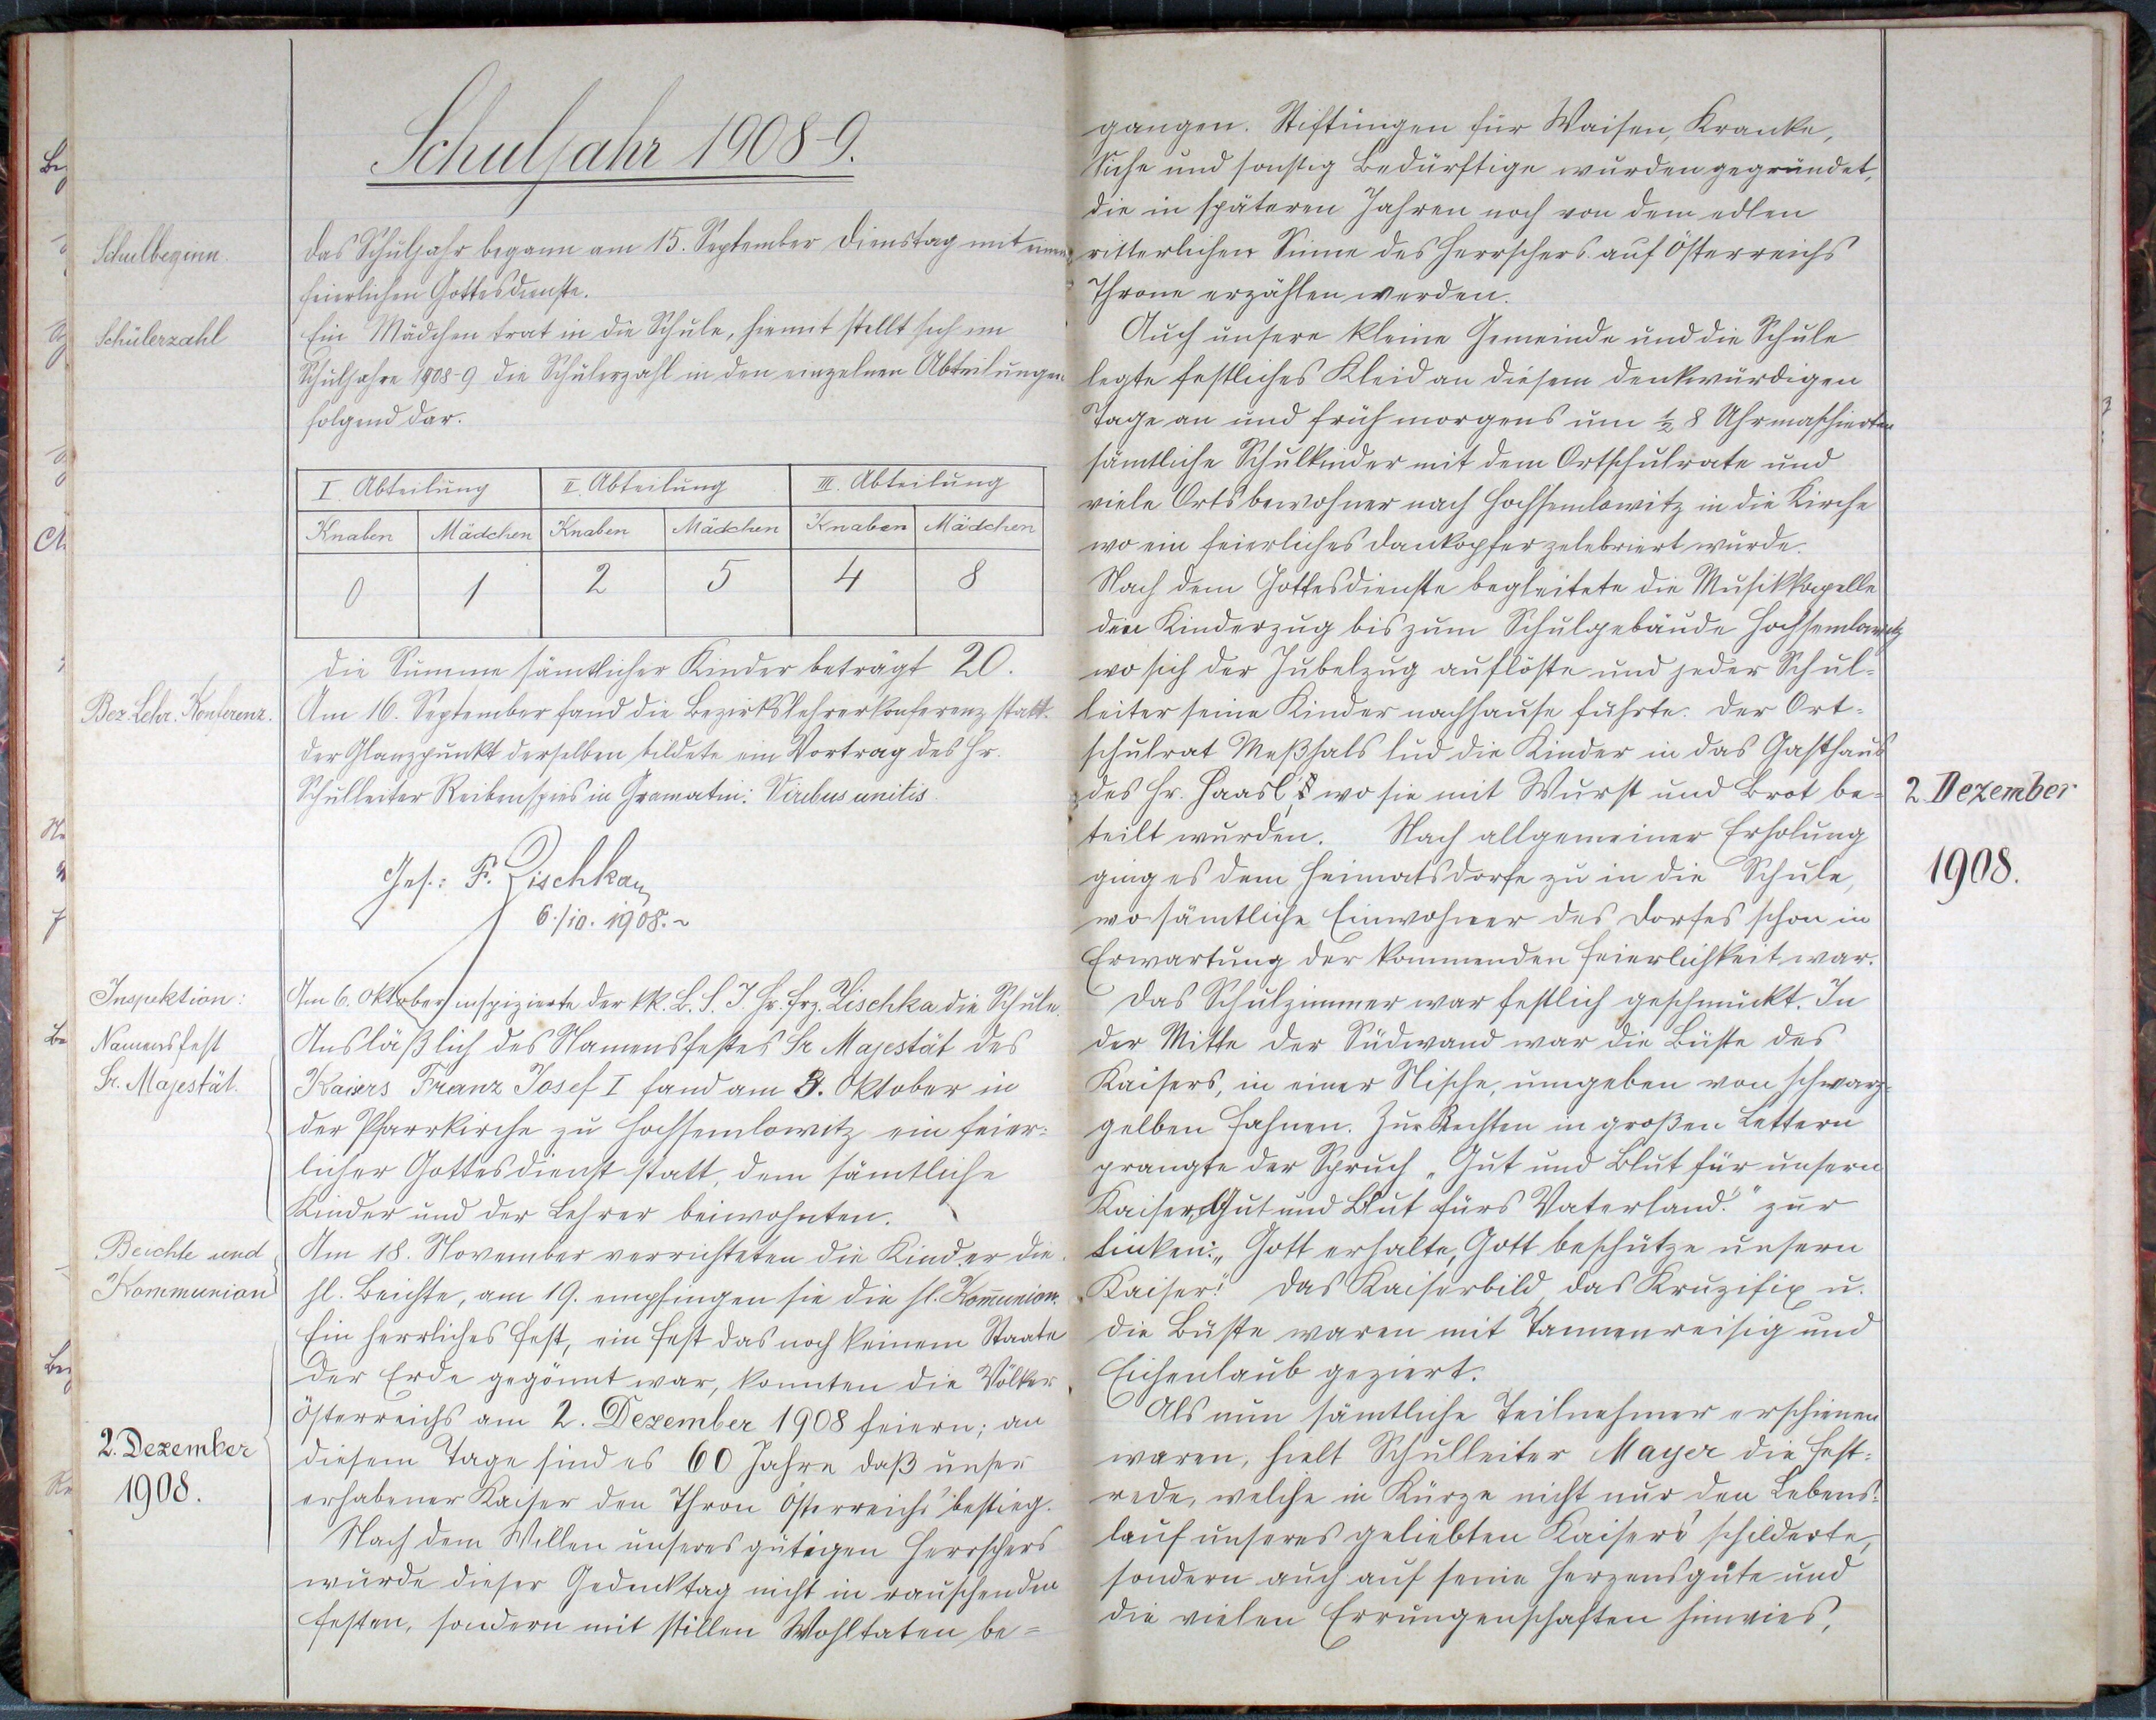 Schuljahr 1908-9.
Schulbeginn.
Das Schuljahr begann am 15. September Dienstag mit einem
feierlichen Gottesdienste.
Schülerzahl
Ein Mädchen trat in die Schule, hiemit stellt sich im
Schuljahre 1908-9 die Schülerzahl in den einzelnen Abteilungen
folgend dar.
I. Abteilung II. Abteilung III. Abteilung
Knaben Mädchen Knaben Mädchen Knaben Mädchen
0 1 2 5 4 8
Die Summe sämtlicher Kinder beträgt 20.
Bez. Lehr. Konferenz.
Am 16. September fand die Bezirkslehrerkonferenz statt.
Der Glanzpunkt derselben bildete ein Vortrag des Hr.
Schulleiter Reibenspies in Gramatin: Viribus unitis.
Ges.: F. Zischka
6./10. 1908.
Inspektion:
Am 6. Oktober inspizierte der kk. B. S. I. Hr. Frz. Zischka die Schule.
Namensfest
Sr. Majestät.
Ausläßlich des Namensfestes Sr Majestät des
Kaisers Franz Josef I fand am 3. Oktober in
der Pfarrkirche zu Hochsemlowitz ein feier-
licher Gottesdienst statt, dem sämtliche
Kinder und der Lehrer beiwohnten.
Beichte und
Kommunion
Am 18. November verrichteten die Kinder die
hl. Beichte, am 19. empfingen sie die hl. Kom̅union.
2. Dezember
1908.
Ein herrliches Fest, ein Fest das noch keinem Staate
der Erde gegönnt war, konnten die Völker
Österreichs am 2. Dezember 1908 feiern; an
diesem Tage sind es 60 Jahre daß unser
erhabener Kaiser den Thron Österreichs bestieg.
Nach dem Willen unseres gütigen Herrschers
wurde dieser Gedenktag nicht in rauschenden
Festen, sondern mit stillen Wohltaten be-
gangen. Stiftungen für Waisen, Kranke,
Siche und sonstig Bedürftige wurden gegründet,
die in späteren Jahren noch von dem edlen
ritterlichen Sinne des Herrschers auf Österreichs
Throne erzählen werden.
Auch unsere kleine Gemeinde und die Schule
legte festliches Kleid an diesem denkwürdigen
Tage an und früh morgens um ½ 8 Uhr maschierten
sämtliche Schulkinder mit dem Ortschulrate und
viele Ortsbewohner nach Hochsemlowitz in die Kirche
wo ein feierliches Dankopfer zelebriert wurde.
Nach dem Gottesdienste begleitete die Musikkapelle
den Kinderzug bis zum Schulgebäude Hochsemlowitz
wo sich der Jubelzug auflöste und jeder Schul-
leiter seine Kinder nachhause führte. Der Ort-
schulrat Meßhals lud die Kinder in das Gasthaus
des Hr. Haasl, wo sie mit Wurst und Brot be-
teilt wurden. Nach allgemeiner Erholung
ging es dem Heimatsdorfe zu in die Schule,
wo sämtliche Einwohner des Dorfes schon in
Erwartung der kommenden Feierlichkeit war.
2. Dezember
1908.
Das Schulzimmer war festlich geschmückt. In
der Mitte der Südwand war die Büste des
Kaisers, in einer Nische, umgeben von schwarz-
gelben Fahnen. Zur Rechten in großen Lettern
prangte der Spruch „Gut und Blut für unsern
Kaiser, Gut und Blut fürs Vaterland." zur
Linken: „Gott erhalte, Gott beschütze unsern
Kaiser!" Das Kaiserbild, das Kruzifix u.
die Büste waren mit Tannenreisig und
Eichenlaub geziert.
Als nun sämtliche Teilnehmer erschienen
waren, hielt Schulleiter Mayer die Fest-
rede, welche in Kürze nicht nur den Lebens-
lauf unseres geliebten Kaisers schilderte,
sondern auch auf seine Herzensgüte und
die vielen Errungenschaften hinwies,